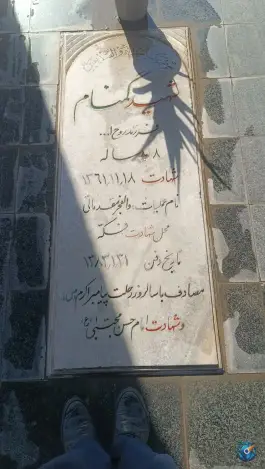 شهید گمنام
فرزند روح ا...
۱۸ ساله
شهادت ۱۳۶۱,۱۱,۱۸
نام عملیات: والفجر مقدماتی
محل شهادت: فکه
تاریخ دفن ۱۳۸۳,۱,۳۱
مصادف با سالروز رحلت پیامبر اکرم (ص)
و شهادت امام حسن مجتبی (ع)